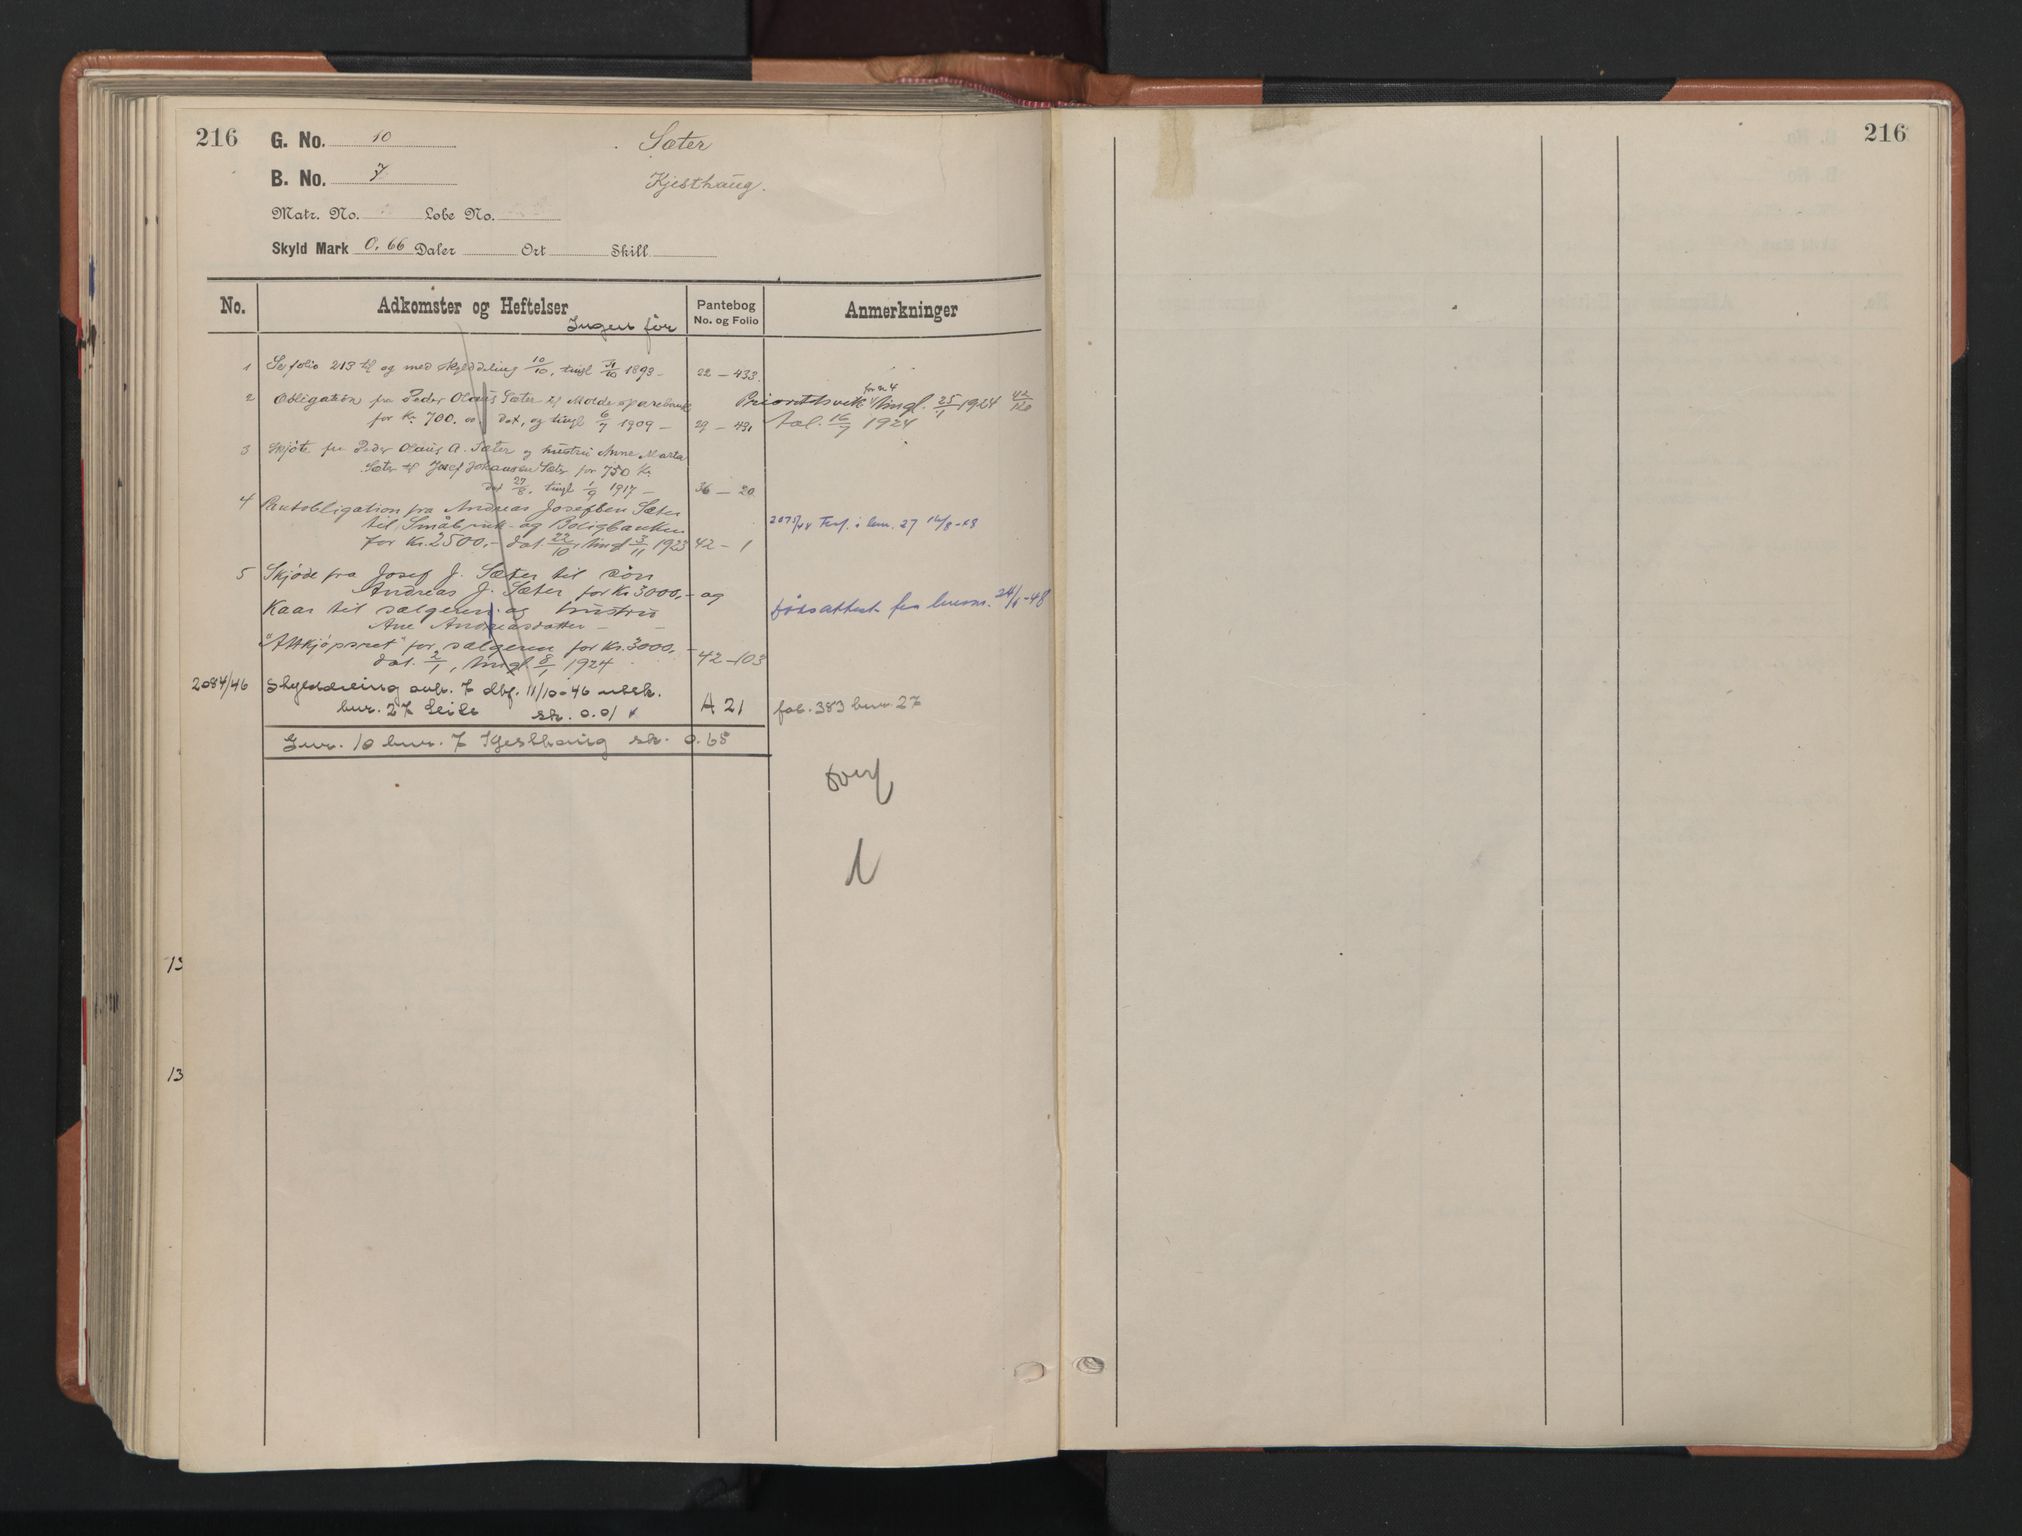 216
G. No. 10
Sæter
B. No. 7
Kjesthaug.
Matr. No. Løbe No.
Skyld Mark 0.66 Daler Ort Skill
No. Adkomster og Heftelser Pantebog No. og Folio Anmerkninger
Ingen før
1 Se folio 213 til og med skylddeling 10/10, tingl 1893 – 22 – 433.
2 Obligation fra Peder Olaus Sæter til Molde sparebank
for Kr. 700.00 dat, og tingl 6/7 1909 – 29 – 431
Prioritetsvek for n 4 tingl. 25/1 1924 42/120
Aal. 16/7 1924
3 Skjöte fra Peder Olaus A. Sæter og hustru Anne Marta
Sæter til Josef Johansen Sæter for 750 Kr.
dat 27/8, tingl 1/9 1917 – 36 – 20
4 Pantobligation fra Andreas Josefsen Sæter
til Småbruk- og Boligbanken
for Kr. 2500,- dat. 22/10, tingl 3/11 1923 42 – 1
2075/48 i bnr. 27 16/8-48
5 Skjøde fra Josef J. Sæter til søn
Andreas J. Sæter for Kr 3000,- og
Kaar til sælgeren og hustru
Ane Andreasdatter –
fra 24/6-48
"Attkjøpsret" for sælgeren for Kr. 3000,-
dat. 2/1, tingl 8/1 1924 42 – 103
2084/46 Skylddeling avh. 7 dbf. 11/10-46 utsk.
bnr. 27 sk. 0.01 A 21 fol. 383 bnr. 27
Gnr. 10 bnr. 7 Kjesthaug sk. 0.65
13
13
216